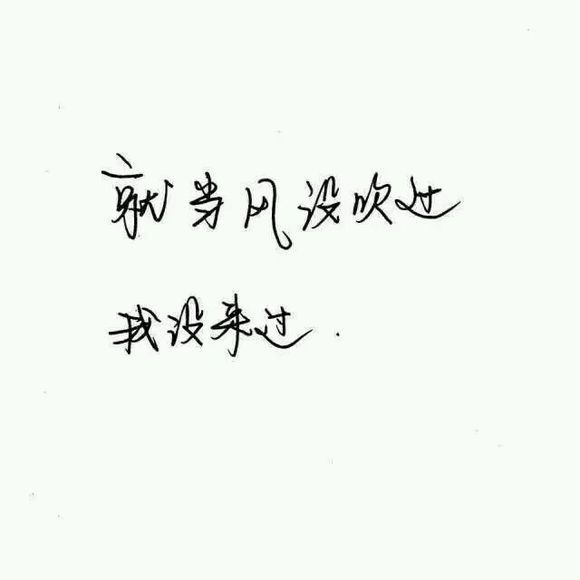 就当风没吹过
我没来过.